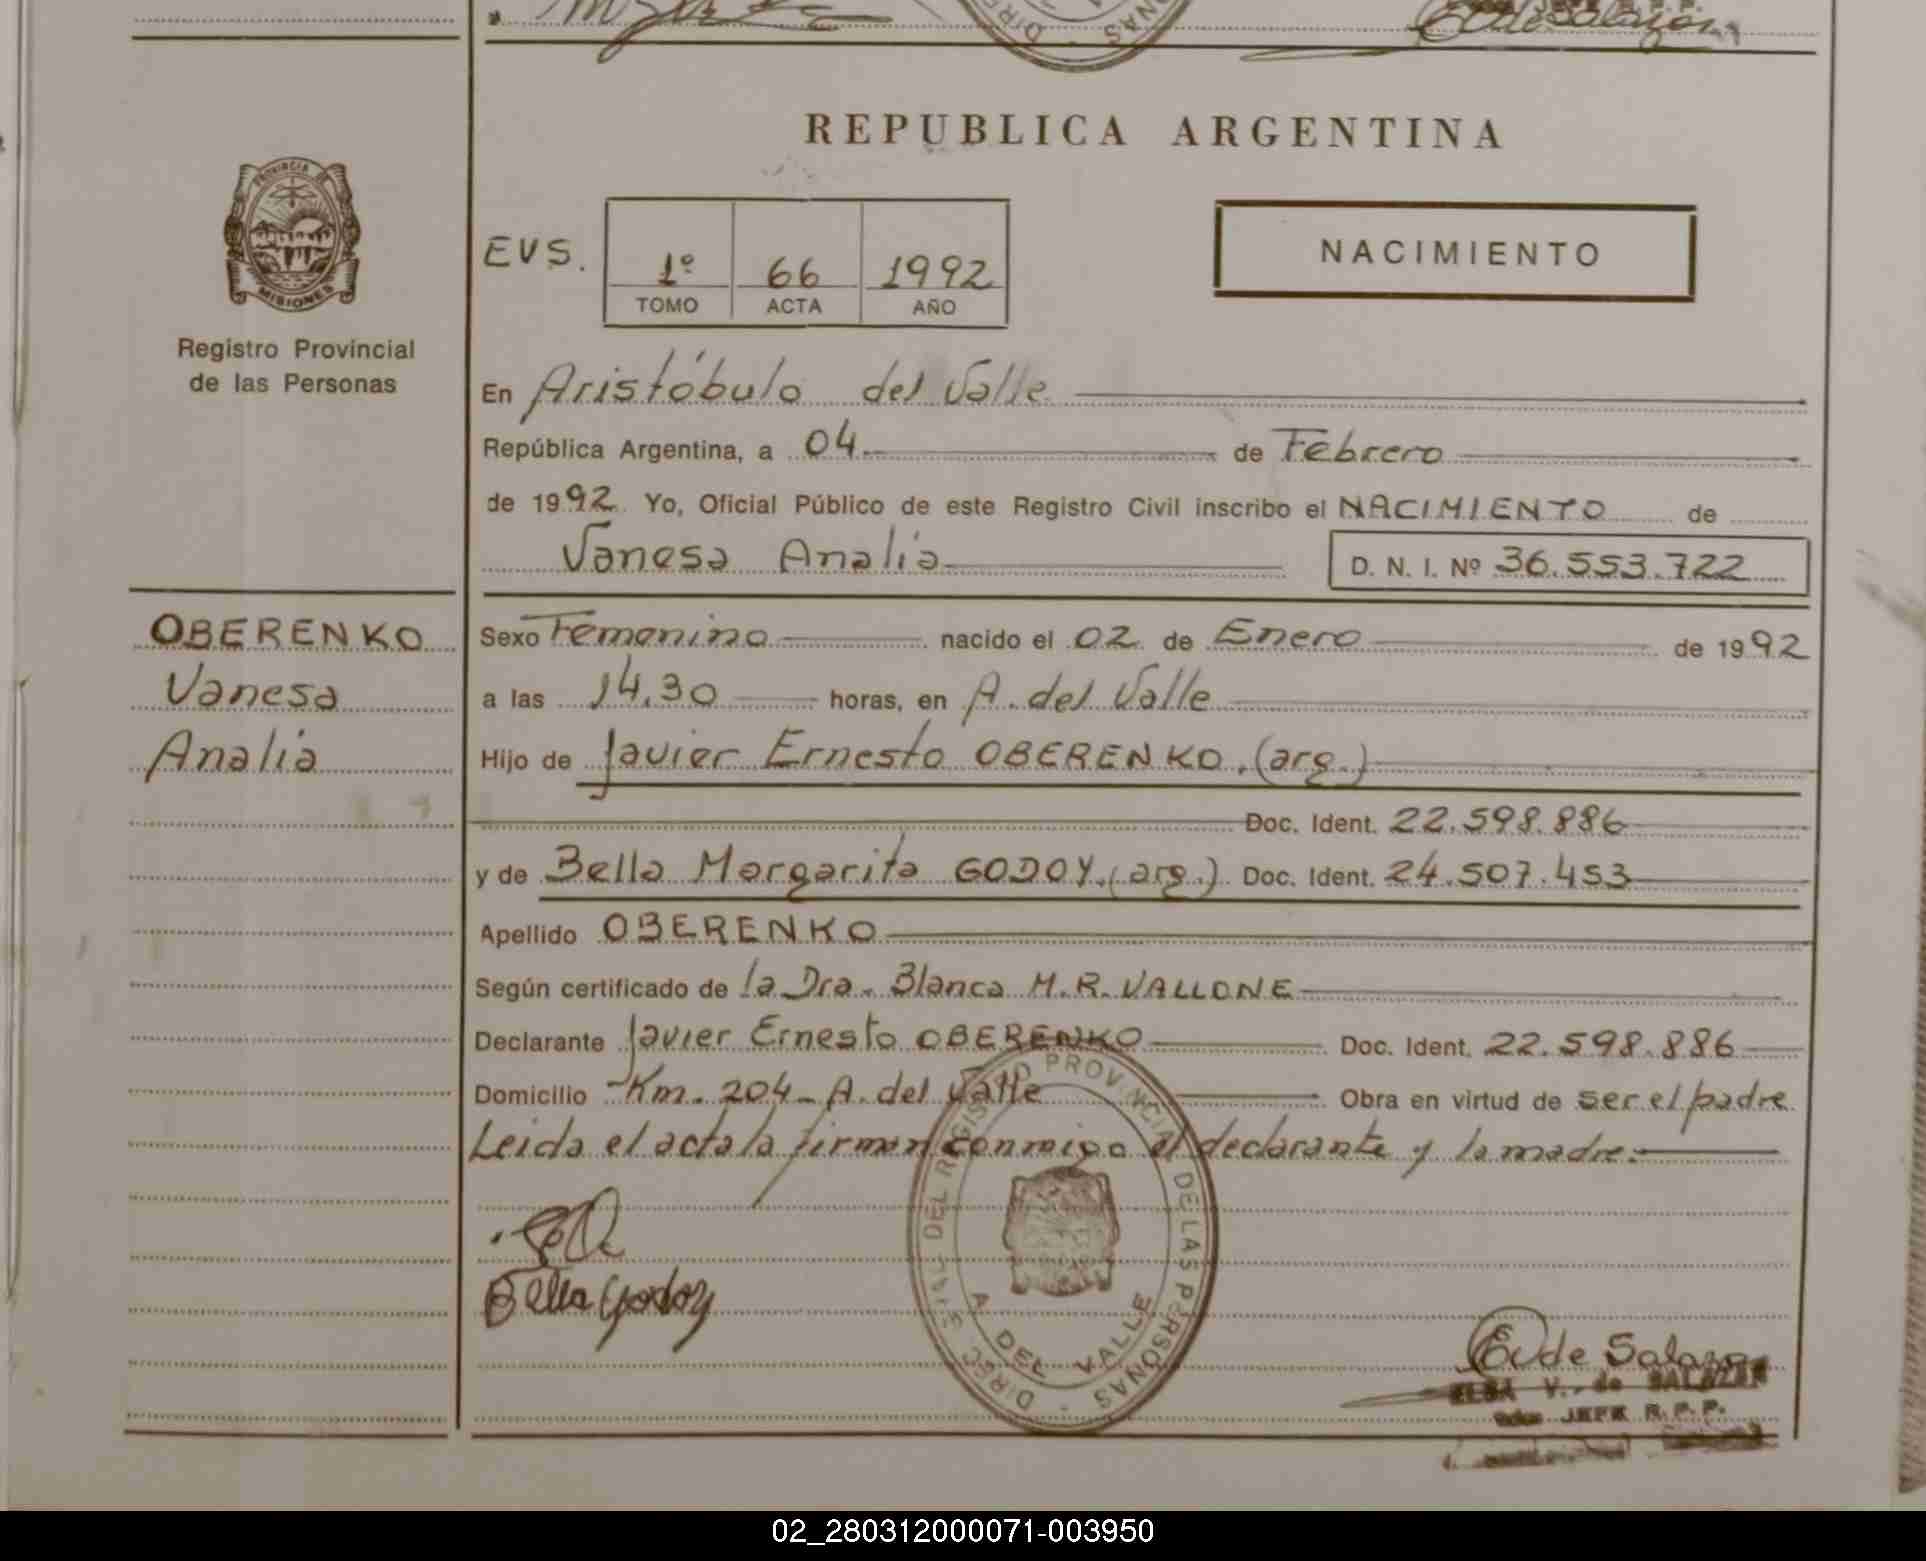 REPUBLICA ARGENTINA
PROVINCIA DE
MISIONES
Registro Provincial
de las Personas
EVS.
1º 66 1992
TOMO ACTA AÑO
NACIMIENTO
En Aristóbulo del Valle
República Argentina, a 04 de Febrero
de 1992 Yo, Oficial Público de este Registro Civil inscribo el NACIMIENTO de
Vanesa Analia D. N. I. Nº 36.553.722
OBERENKO
Vanesa
Analia
Sexo Femenino nacido el 02 de Enero de 1992
a las 14.30 horas, en A. del Valle
Hijo de Javier Ernesto OBERENKO. (arg.)
Doc. Ident. 22.598.886
y de Bella Margarita GODOY. (arg.) Doc. Ident. 24.507.453
Apellido OBERENKO
Según certificado de la Dra. Blanca M. R. VALLONE
Declarante Javier Ernesto OBERENKO Doc. Ident. 22.598.886
Domicilio Km. 204 - A. del Valle Obra en virtud de ser el padre
Leida el acta la firman conmigo el declarante y la madre.
Bella Godoy
DEL REGISTRO PROVINCIAL DE LAS PERSONAS
A DEL VALLE
E V de Salazar
ELSA V. de SALAZAR
JEFE R. P. P.
02_280312000071-003950